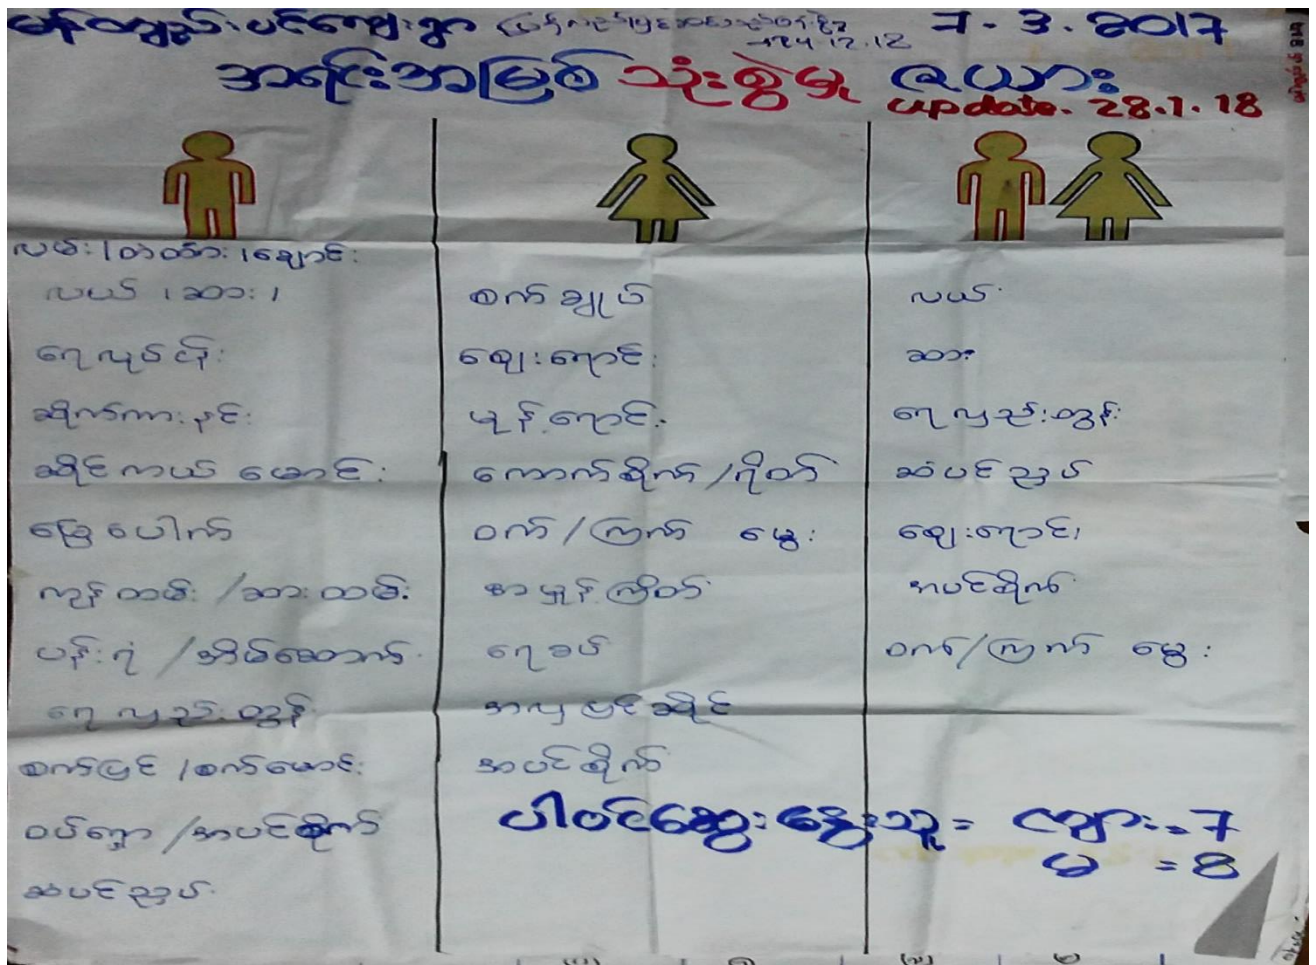 မန်ကျည်းပင်ကျေးရွာ 7.3.2017
အရင်းအမြစ် သုံးစွဲမှု ဇယား
update. 28.1.18
လမ်း၊တံတား၊ချောင်း
လယ်၊ဆား၊
ရေလုပ်ငန်း
ဆိုက်ကားနင်း
ဆိုင်ကယ်မောင်း
ခြံပေါက်
ကျွန်းထမ်း/ဆားထမ်း
ပန်းရံ/အိမ်ဆောက်
ရေလှည်းတွန်း
စက်ပြင်/စက်မောင်း
ဝပ်ရှော့/အပင်စိုက်
ဆံပင်ညှပ်
စက်ချုပ်
ဈေးရောင်း
မုန့်ရောင်း
ကောက်စိုက်/ရိတ်
ဝက်/ကြက် မွေး
အမှုန့်ကြိတ်
ရေခပ်
အလှပြင်ဆိုင်
အပင်စိုက်
လယ်
ဆား
ရေလှည်းတွန်း
ဆံပင်ညှပ်
ဈေးရောင်း
အပင်စိုက်
ဝက်/ကြက် မွေး
ပါဝင်ဆွေးနွေးသူ = ကျား = 7
မ = 8